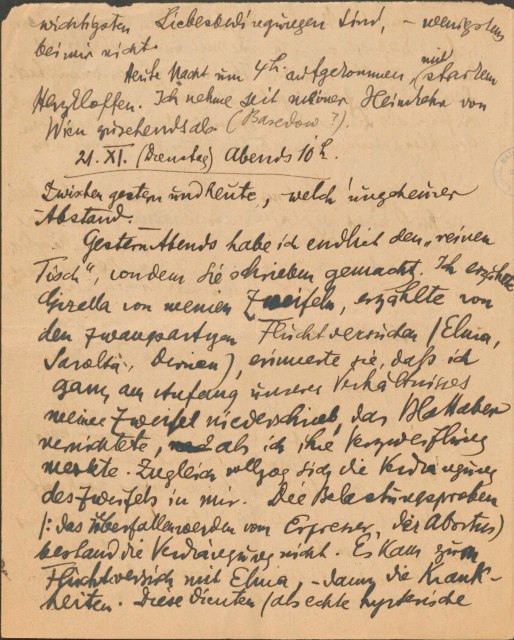 wichtigsten Liebesbedingungen sind, – wenigstens
bei mir nicht.
Heute Nacht um 4h aufgekommen, mit starkem
Herzklopfen. Ich nehme seit meiner Heimkehr von
Wien zusehends ab. (Basedow?).
21. XI. (Dienstag) Abends 10h.
Zwischen gestern und heute, – welch' ungeheurer
Abstand.
Gestern Abends habe ich endlich den „reinen
Tisch", von dem Sie schrieben gemacht. Ich erzählte
Gizella von meinen Zweifeln, erzählte von
den zwangsartigen Fluchtversuchen (Elma,
Sarolta, Dirnen), erinnerte sie, daß ich
ganz am Anfang unseres Verhältnisses
meine Zweifel niederschrieb, das Blatt aber
vernichtete, als ich ihre Verzweiflung
merkte. Zugleich vollzog sich die Verdrängung
des Zweifels in mir. Die Belastungsproben
/: das Überfallenwerden vom Erpresser, der Abortus)
bestand die Verdrängung nicht. Es kam zum
Fluchtversuch mit Elma, – dann die Krank-
heiten. Diese dienten (als echte hysterische